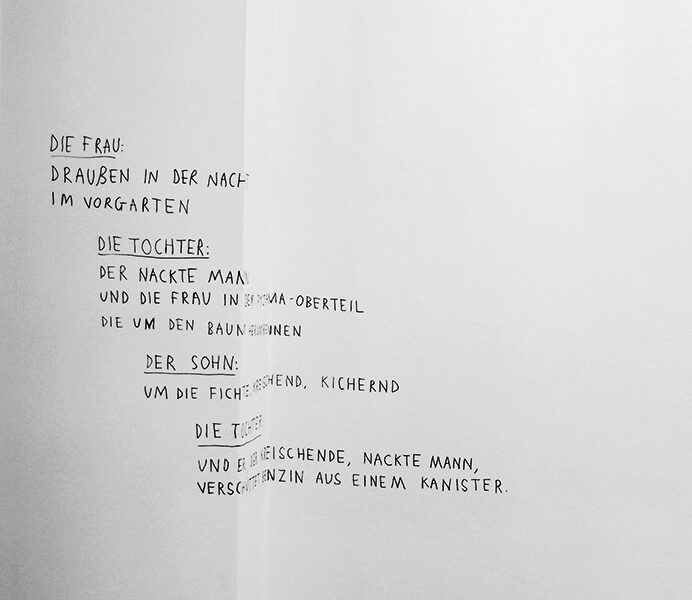 DIE FRAU:
DRAUßEN IN DER NACHT
IM VORGARTEN
DIE TOCHTER:
DER NACKTE MANN
UND DIE FRAU IN DEM PYJAMA-OBERTEIL
DIE UM DEN BAUM HERUMRENNEN
DER SOHN:
UM DIE FICHTE, KREISCHEND, KICHERND
DIE TOCHTER
UND ER, DER KREISCHENDE, NACKTE MANN,
VERSCHÜTTET BENZIN AUS EINEM KANISTER.